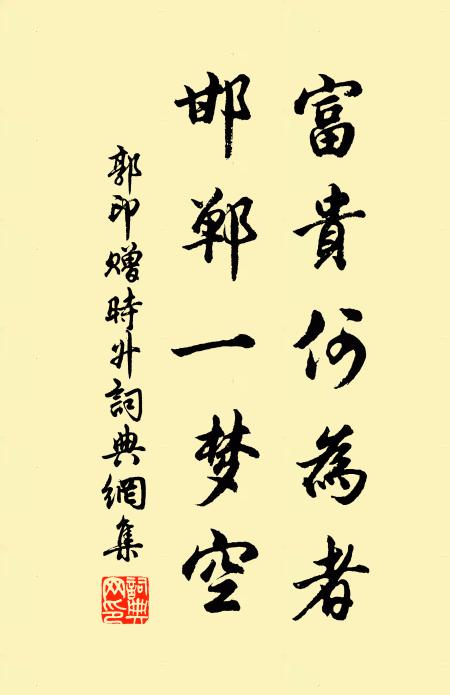 富貴何為者
邯鄲一梦空
郭印贈時升詞典網集
詞典网印